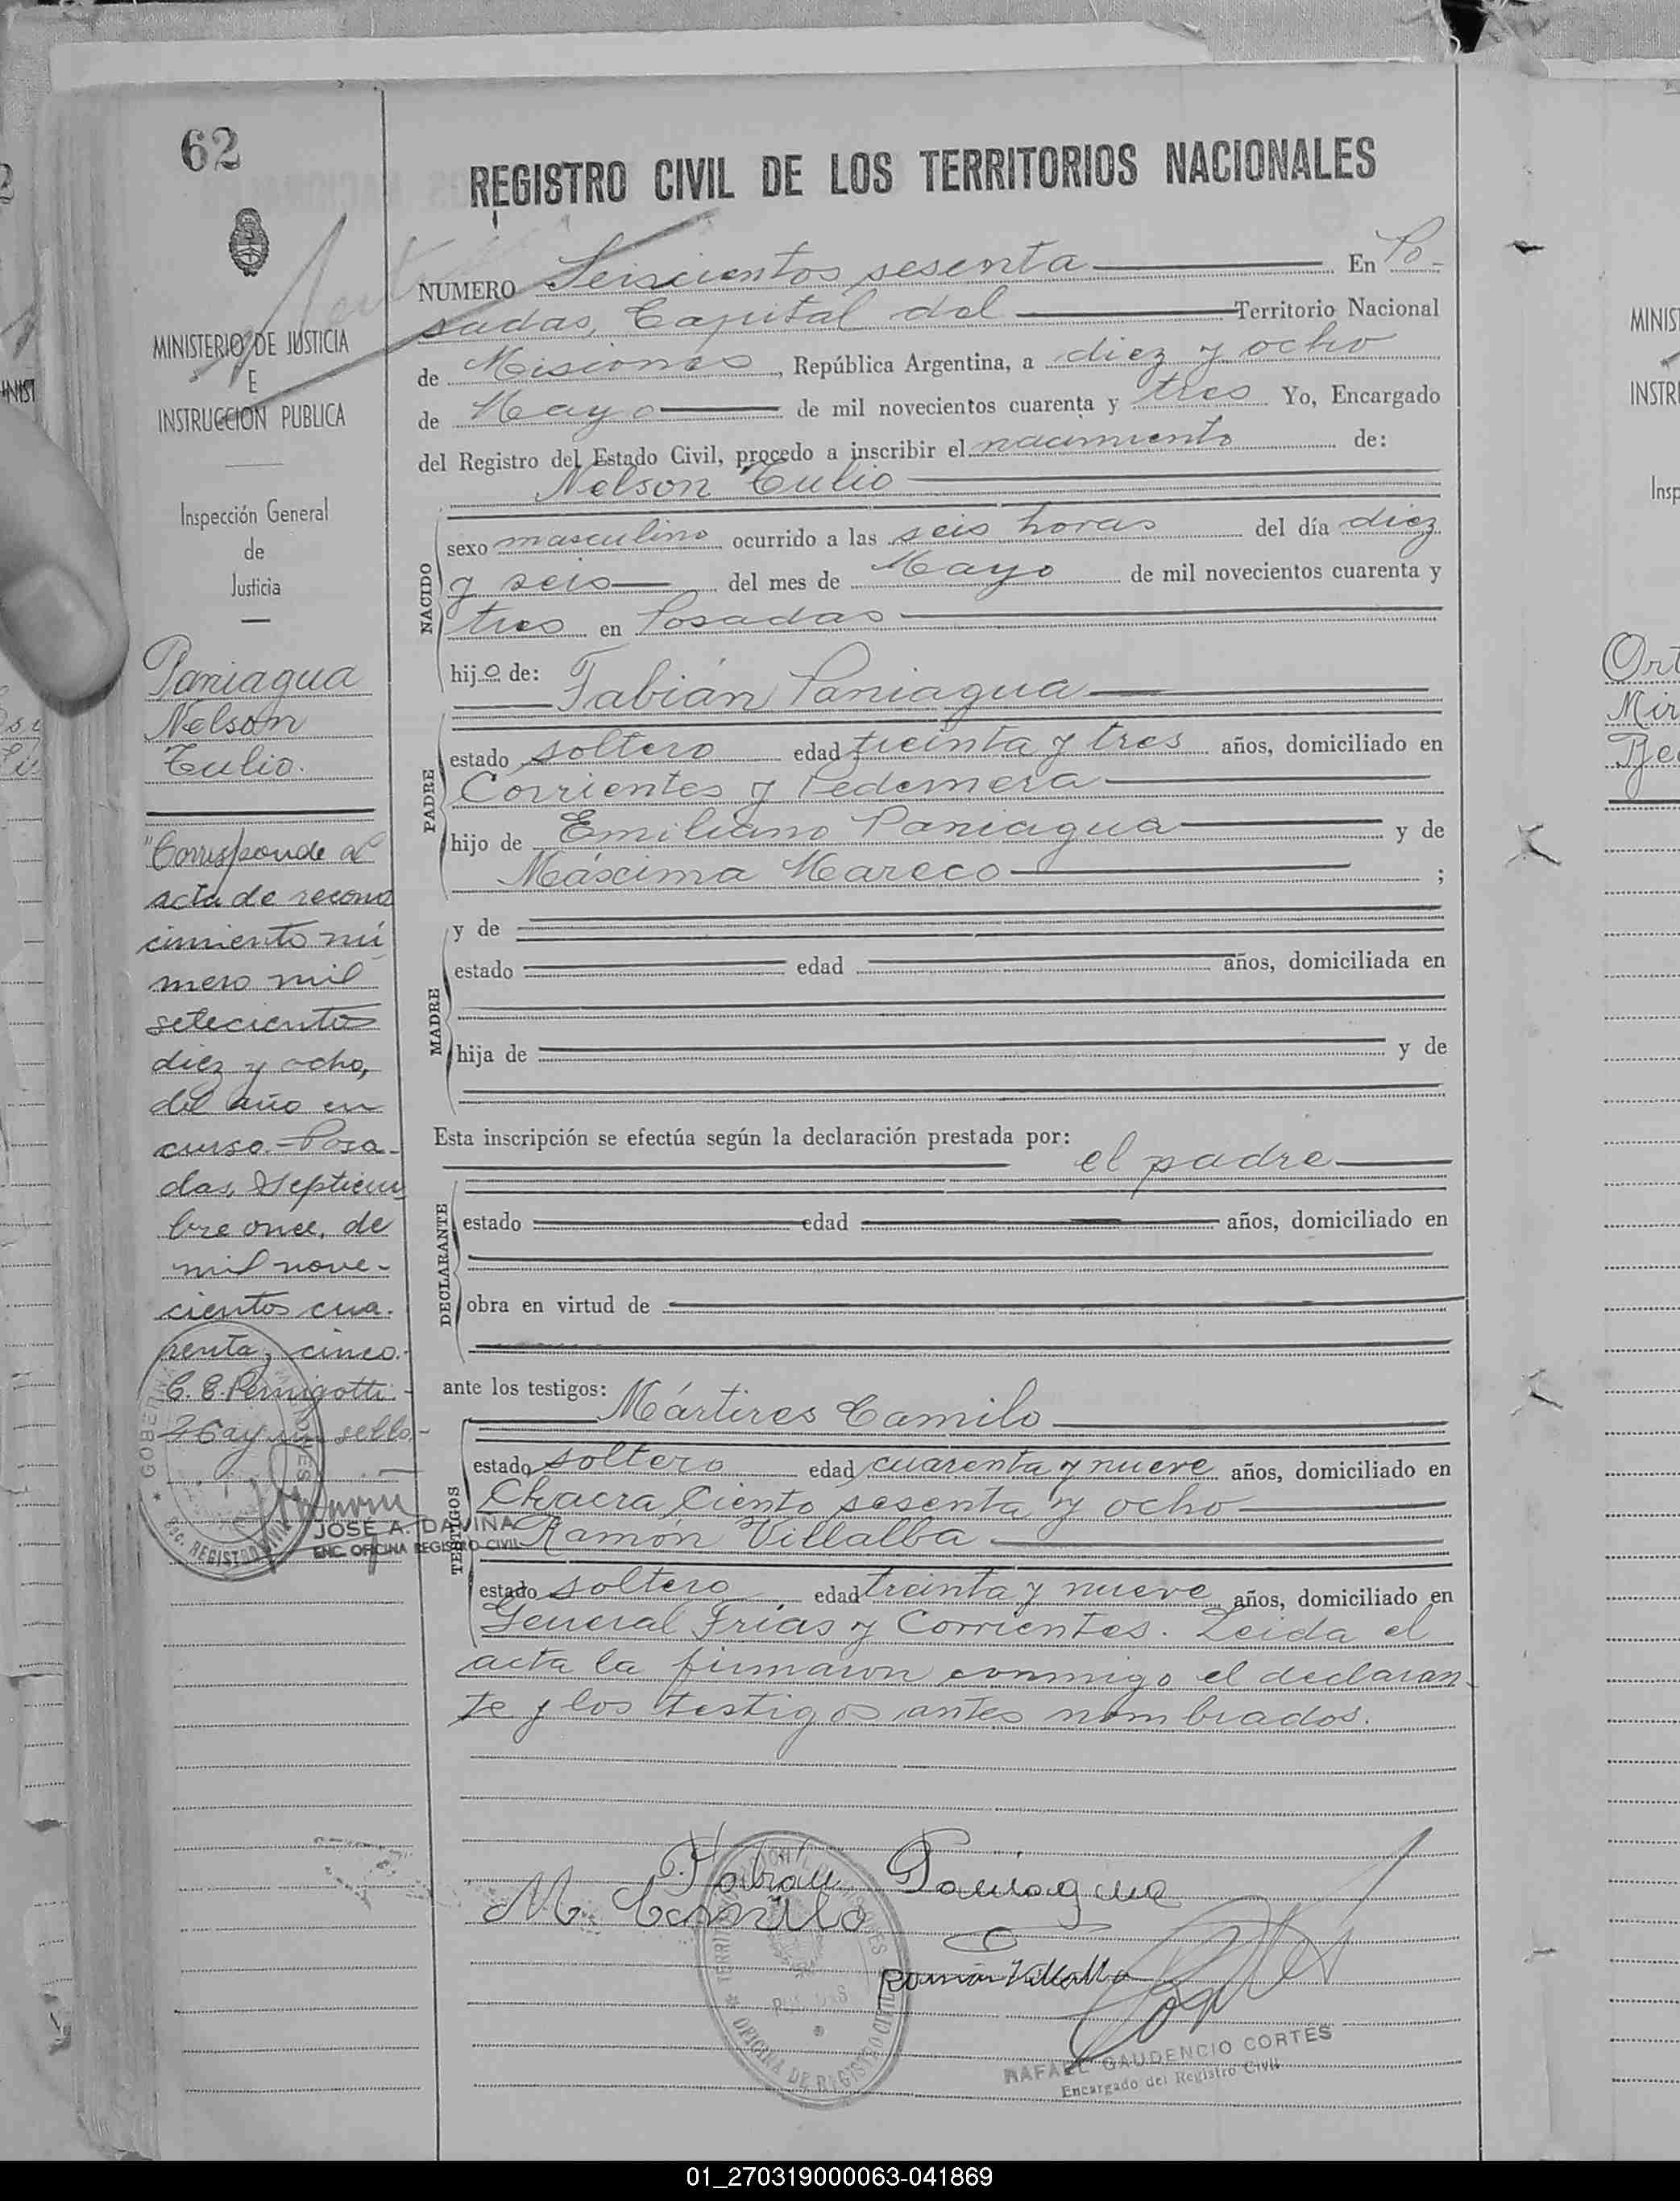 62
MINISTERIO DE JUSTICIA
E
INSTRUCCION PUBLICA
Inspección General
de
Justicia
Paniagua
Nelson
Tulio.
"Corresponde al
acta de recono
cimiento nú
mero mil
setecientos
diez y ocho,
del año en
curso. Posa-
das, Septiem
bre once, de
mil nove-
cientos cua-
renta y cinco.-
C. E. Pernigotti.-
Hay un sello.-
JOSÉ A. DAVIÑA
ENC. OFICINA REGISTRO CIVIL
REGISTRO CIVIL DE LOS TERRITORIOS NACIONALES
NUMERO Seiscientos sesenta En Po-
sadas, Capital del Territorio Nacional
de Misiones, República Argentina, a diez y ocho
de Mayo de mil novecientos cuarenta y tres Yo, Encargado
del Registro del Estado Civil, procedo a inscribir el nacimiento de:
Nelson Tulio
NACIDO
sexo masculino ocurrido a las seis horas del día diez
y seis del mes de Mayo de mil novecientos cuarenta y
tres en Posadas
hijo de: Fabián Paniagua
PADRE
estado soltero edad treinta y tres años, domiciliado en
Corrientes y Pedernera
hijo de Emiliano Paniagua y de
Máxima Mareco ;
MADRE
y de
estado edad años, domiciliada en
hija de y de
Esta inscripción se efectúa según la declaración prestada por:
el padre
DECLARANTE
estado edad años, domiciliado en
obra en virtud de
ante los testigos: Mártires Camilo
TESTIGOS
estado soltero edad cuarenta y nueve años, domiciliado en
Chacra Ciento sesenta y ocho
Ramón Villalba
estado soltero edad treinta y nueve años, domiciliado en
General Frías y Corrientes. Leida el
acta la firmaron conmigo el declaran-
te y los testigos antes nombrados.
Fabián Paniagua
M. Camilo
Ramón Villalba
RAFAEL GAUDENCIO CORTES
Encargado del Registro Civil
OFICINA DE REGISTRO
01_270319000063-041869